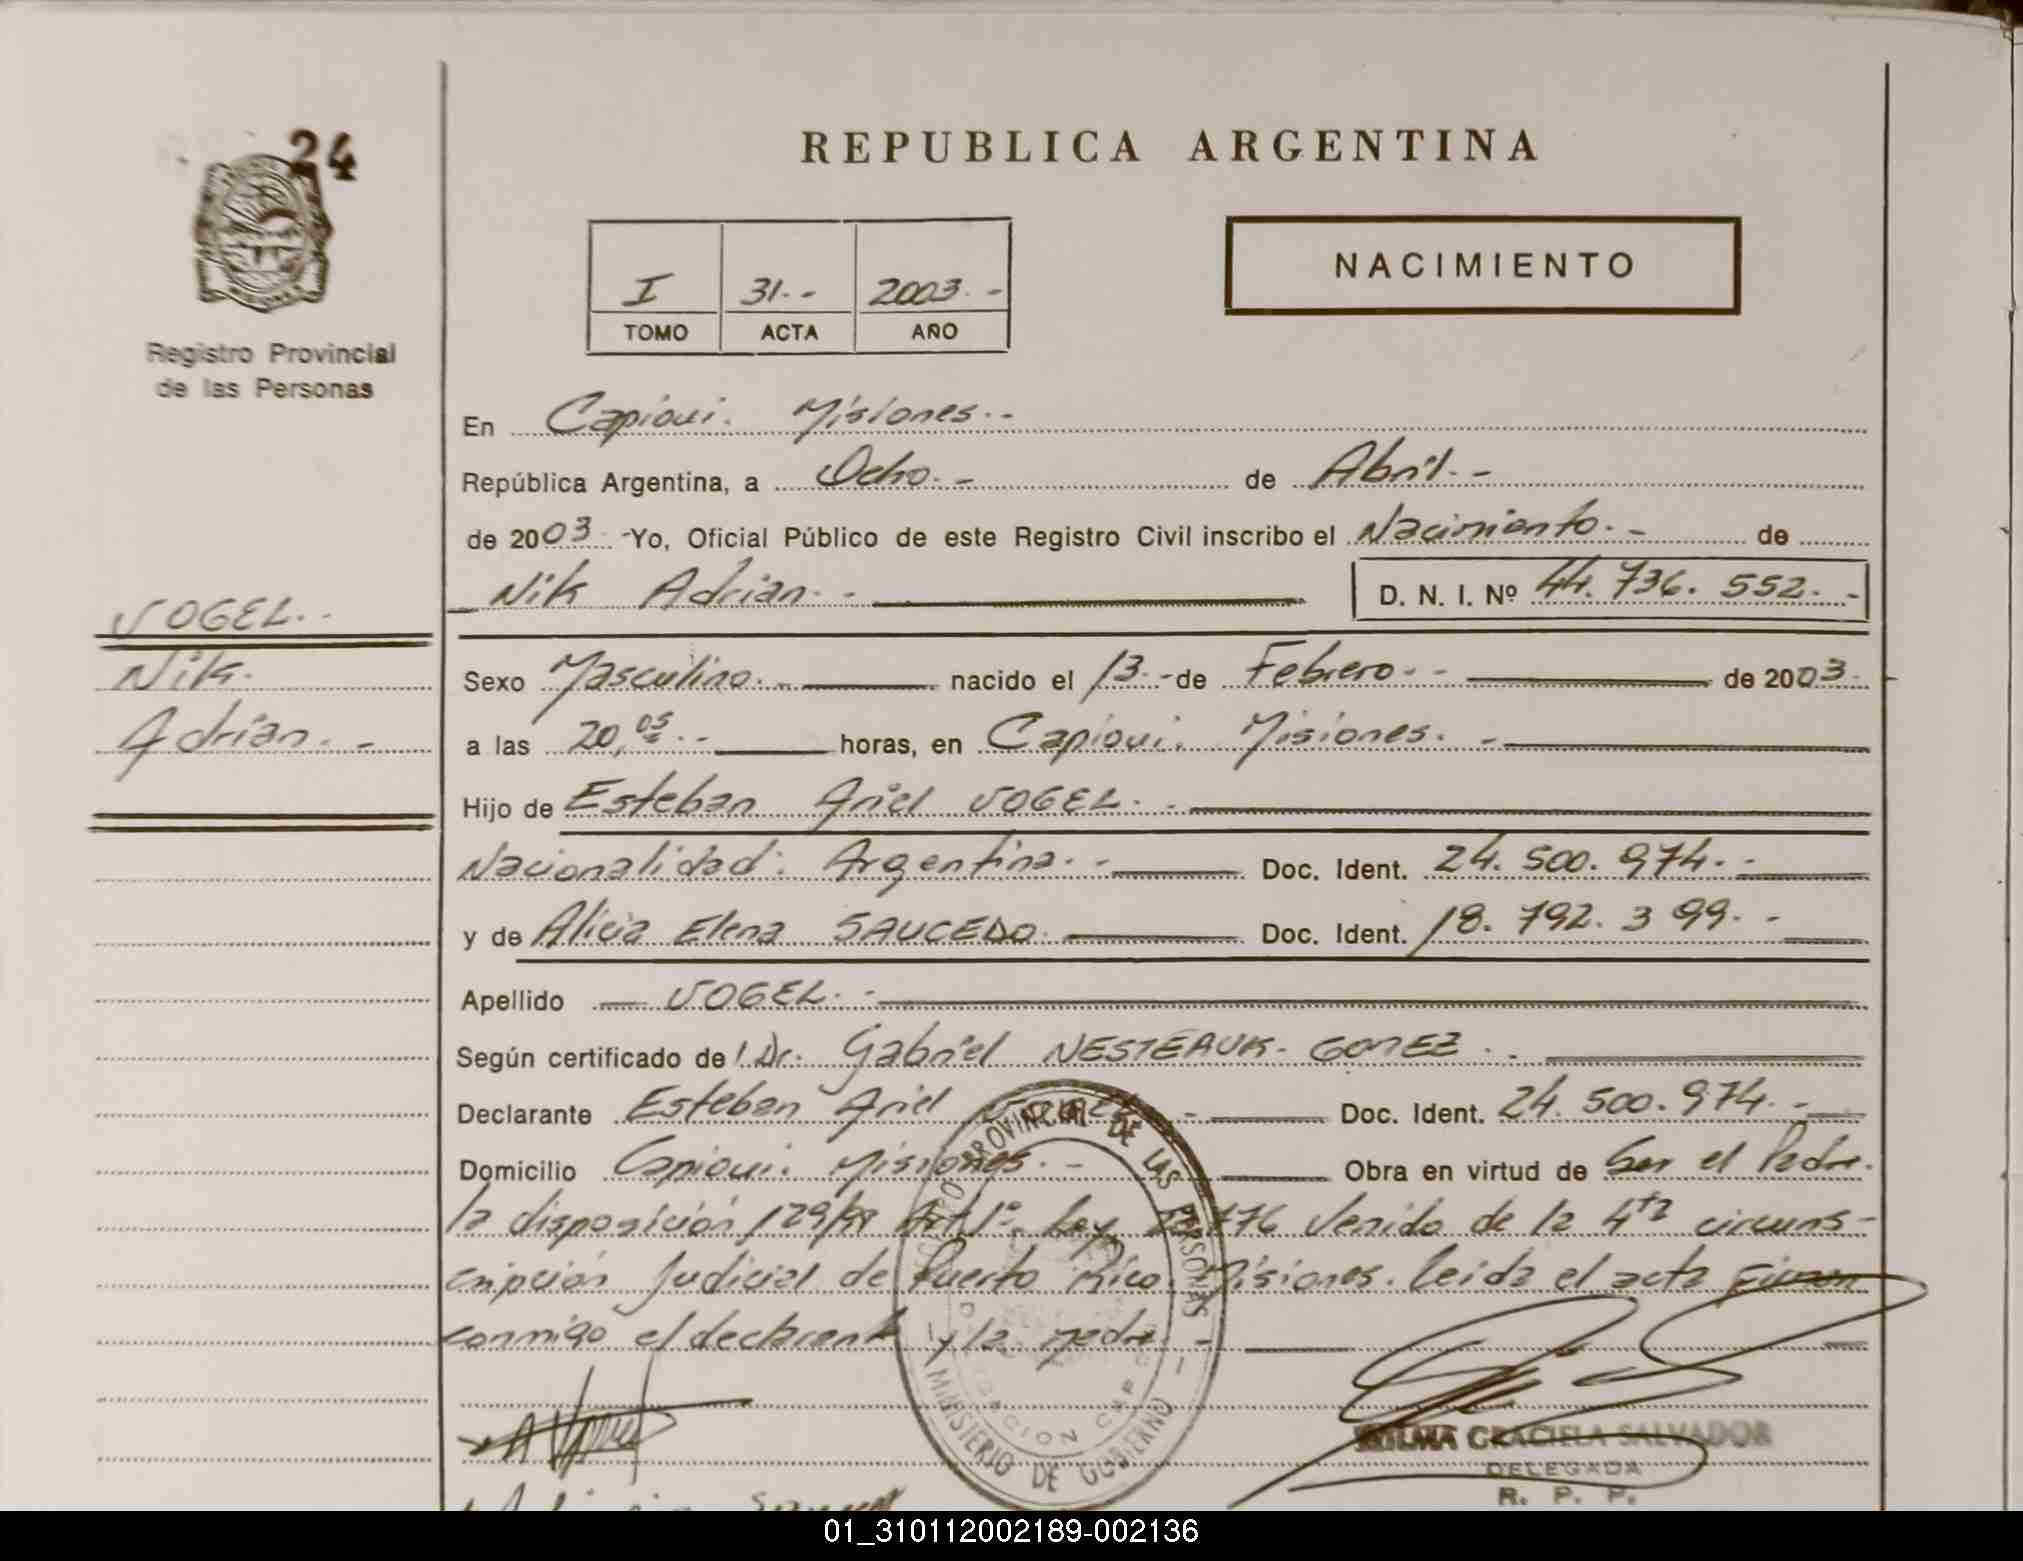 24
REPUBLICA ARGENTINA
I 31.- 2003.-
TOMO ACTA AÑO
NACIMIENTO
Registro Provincial
de las Personas
En Capioui. Misiones.-
República Argentina, a Ocho.- de Abril.-
de 2003.-Yo, Oficial Público de este Registro Civil inscribo el Nacimiento.- de
Nik Adrian.- D. N. I. Nº 44.736.552.-
VOGEL.-
Nik.
Adrian.-
Sexo Masculino.- nacido el 13.-de Febrero.- de 2003.
a las 20,05.- horas, en Capioui. Misiones.-
Hijo de Esteban Ariel VOGEL.-
Nacionalidad: Argentina.- Doc. Ident. 24.500.974.-
y de Alicia Elena SAUCEDO. Doc. Ident. 18.792.399.-
Apellido VOGEL.-
Según certificado de l Dr. Gabriel GOMEZ.-
Declarante Esteban Ariel VOGEL.- Doc. Ident. 24.500.974.-
Domicilio Capioui. Misiones.- Obra en virtud de Ser el Padre.
la disposición Art 1º. Ley venido de la 4ta circuns-
cripción Judicial de Puerto Rico. Misiones. leida el acta Firman
conmigo el declarante y la madre.-
PROVINCIAL DE LAS PERSONAS
MINISTERIO DE GOBIERNO
GRACIELA SALVADOR
DELEGADA
R. P. P.
01_310112002189-002136